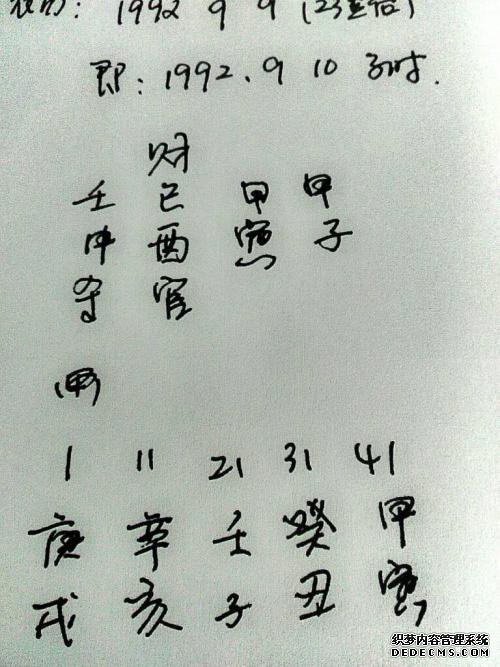 1992 9 9 (23点后)
即: 1992.9 10 子时.
财
壬 己 甲 甲
申 酉 寅 子
官
1 11 21 31 41
庚 辛 壬 癸 甲
戌 亥 子 丑 寅
织梦内容管理系统
DEDECMS.COM